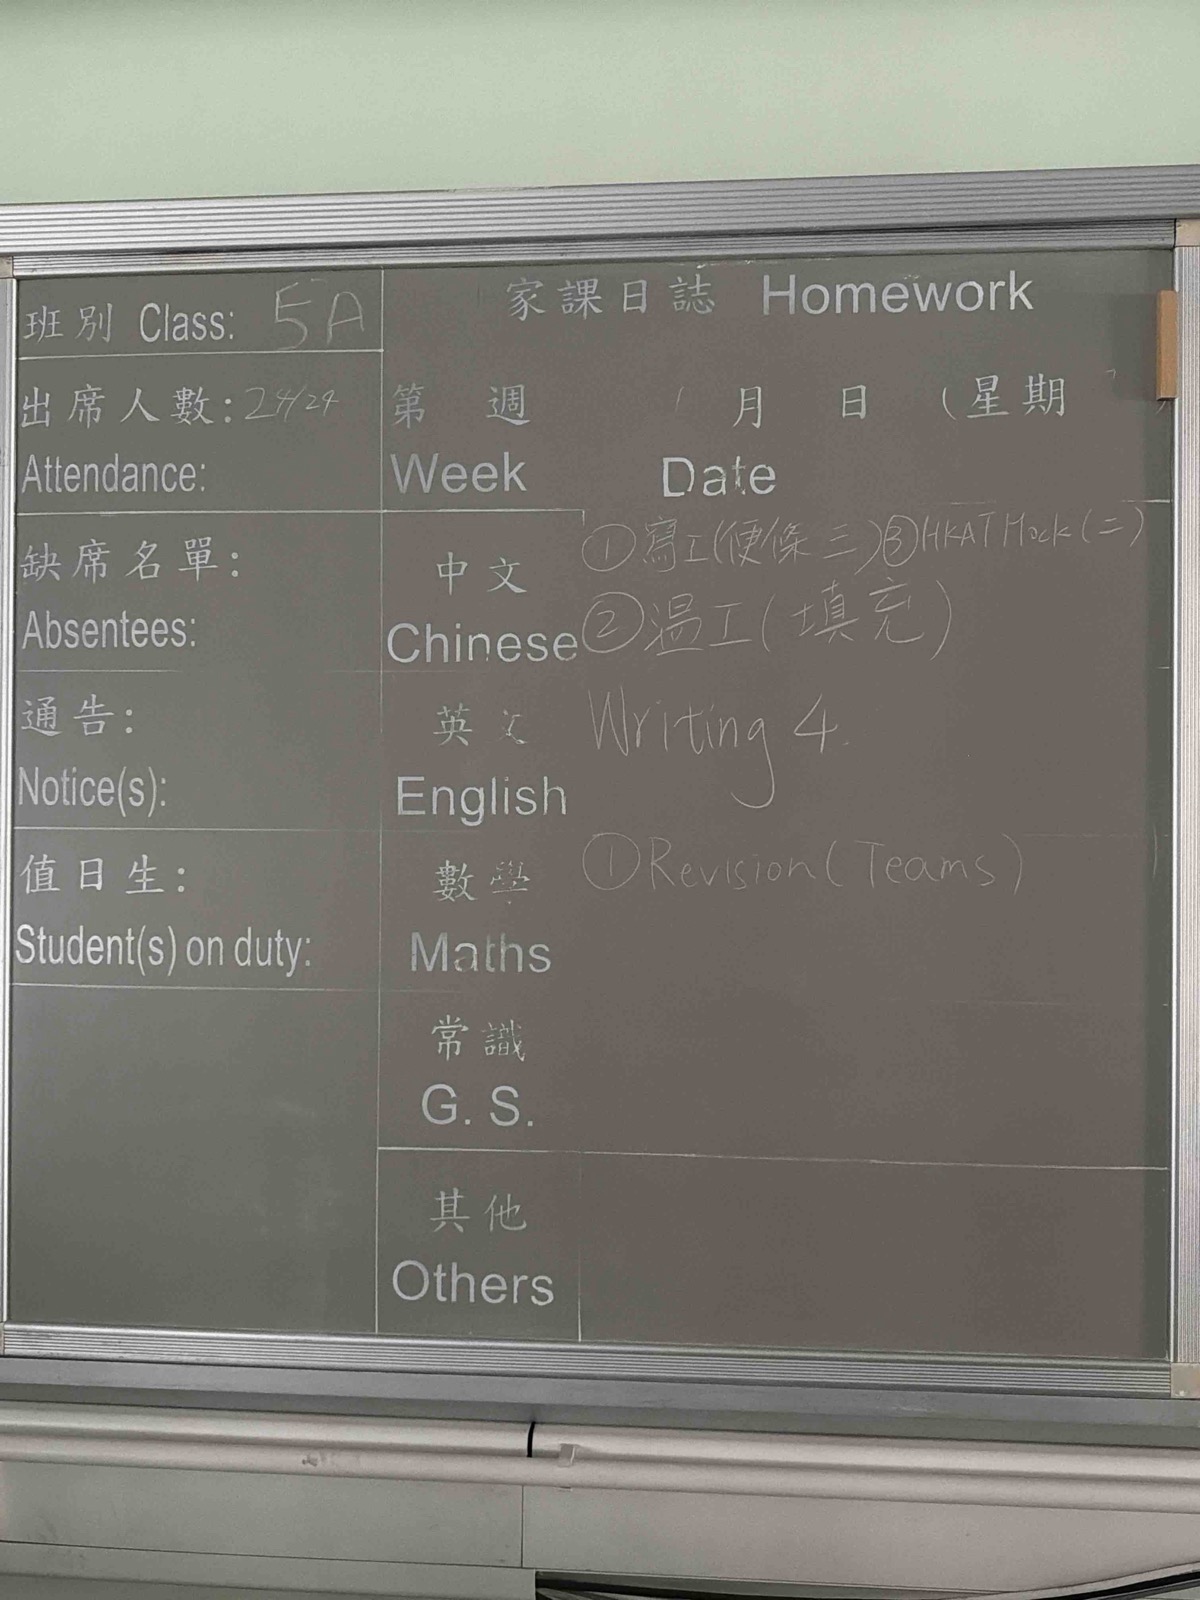 班別 Class: 5A
出席人數: 24/24
Attendance:
缺席名單:
Absentees:
通告:
Notice(s):
值日生:
Student(s) on duty:
家課日誌 Homework
第 週 月 日 (星期 )
Week Date
中文
Chinese
①寫工(便條三)③HKAT Mock(二)
②溫工(填充)
英文
English
Writing 4.
數學
Maths
①Revision(Teams)
常識
G. S.
其他
Others